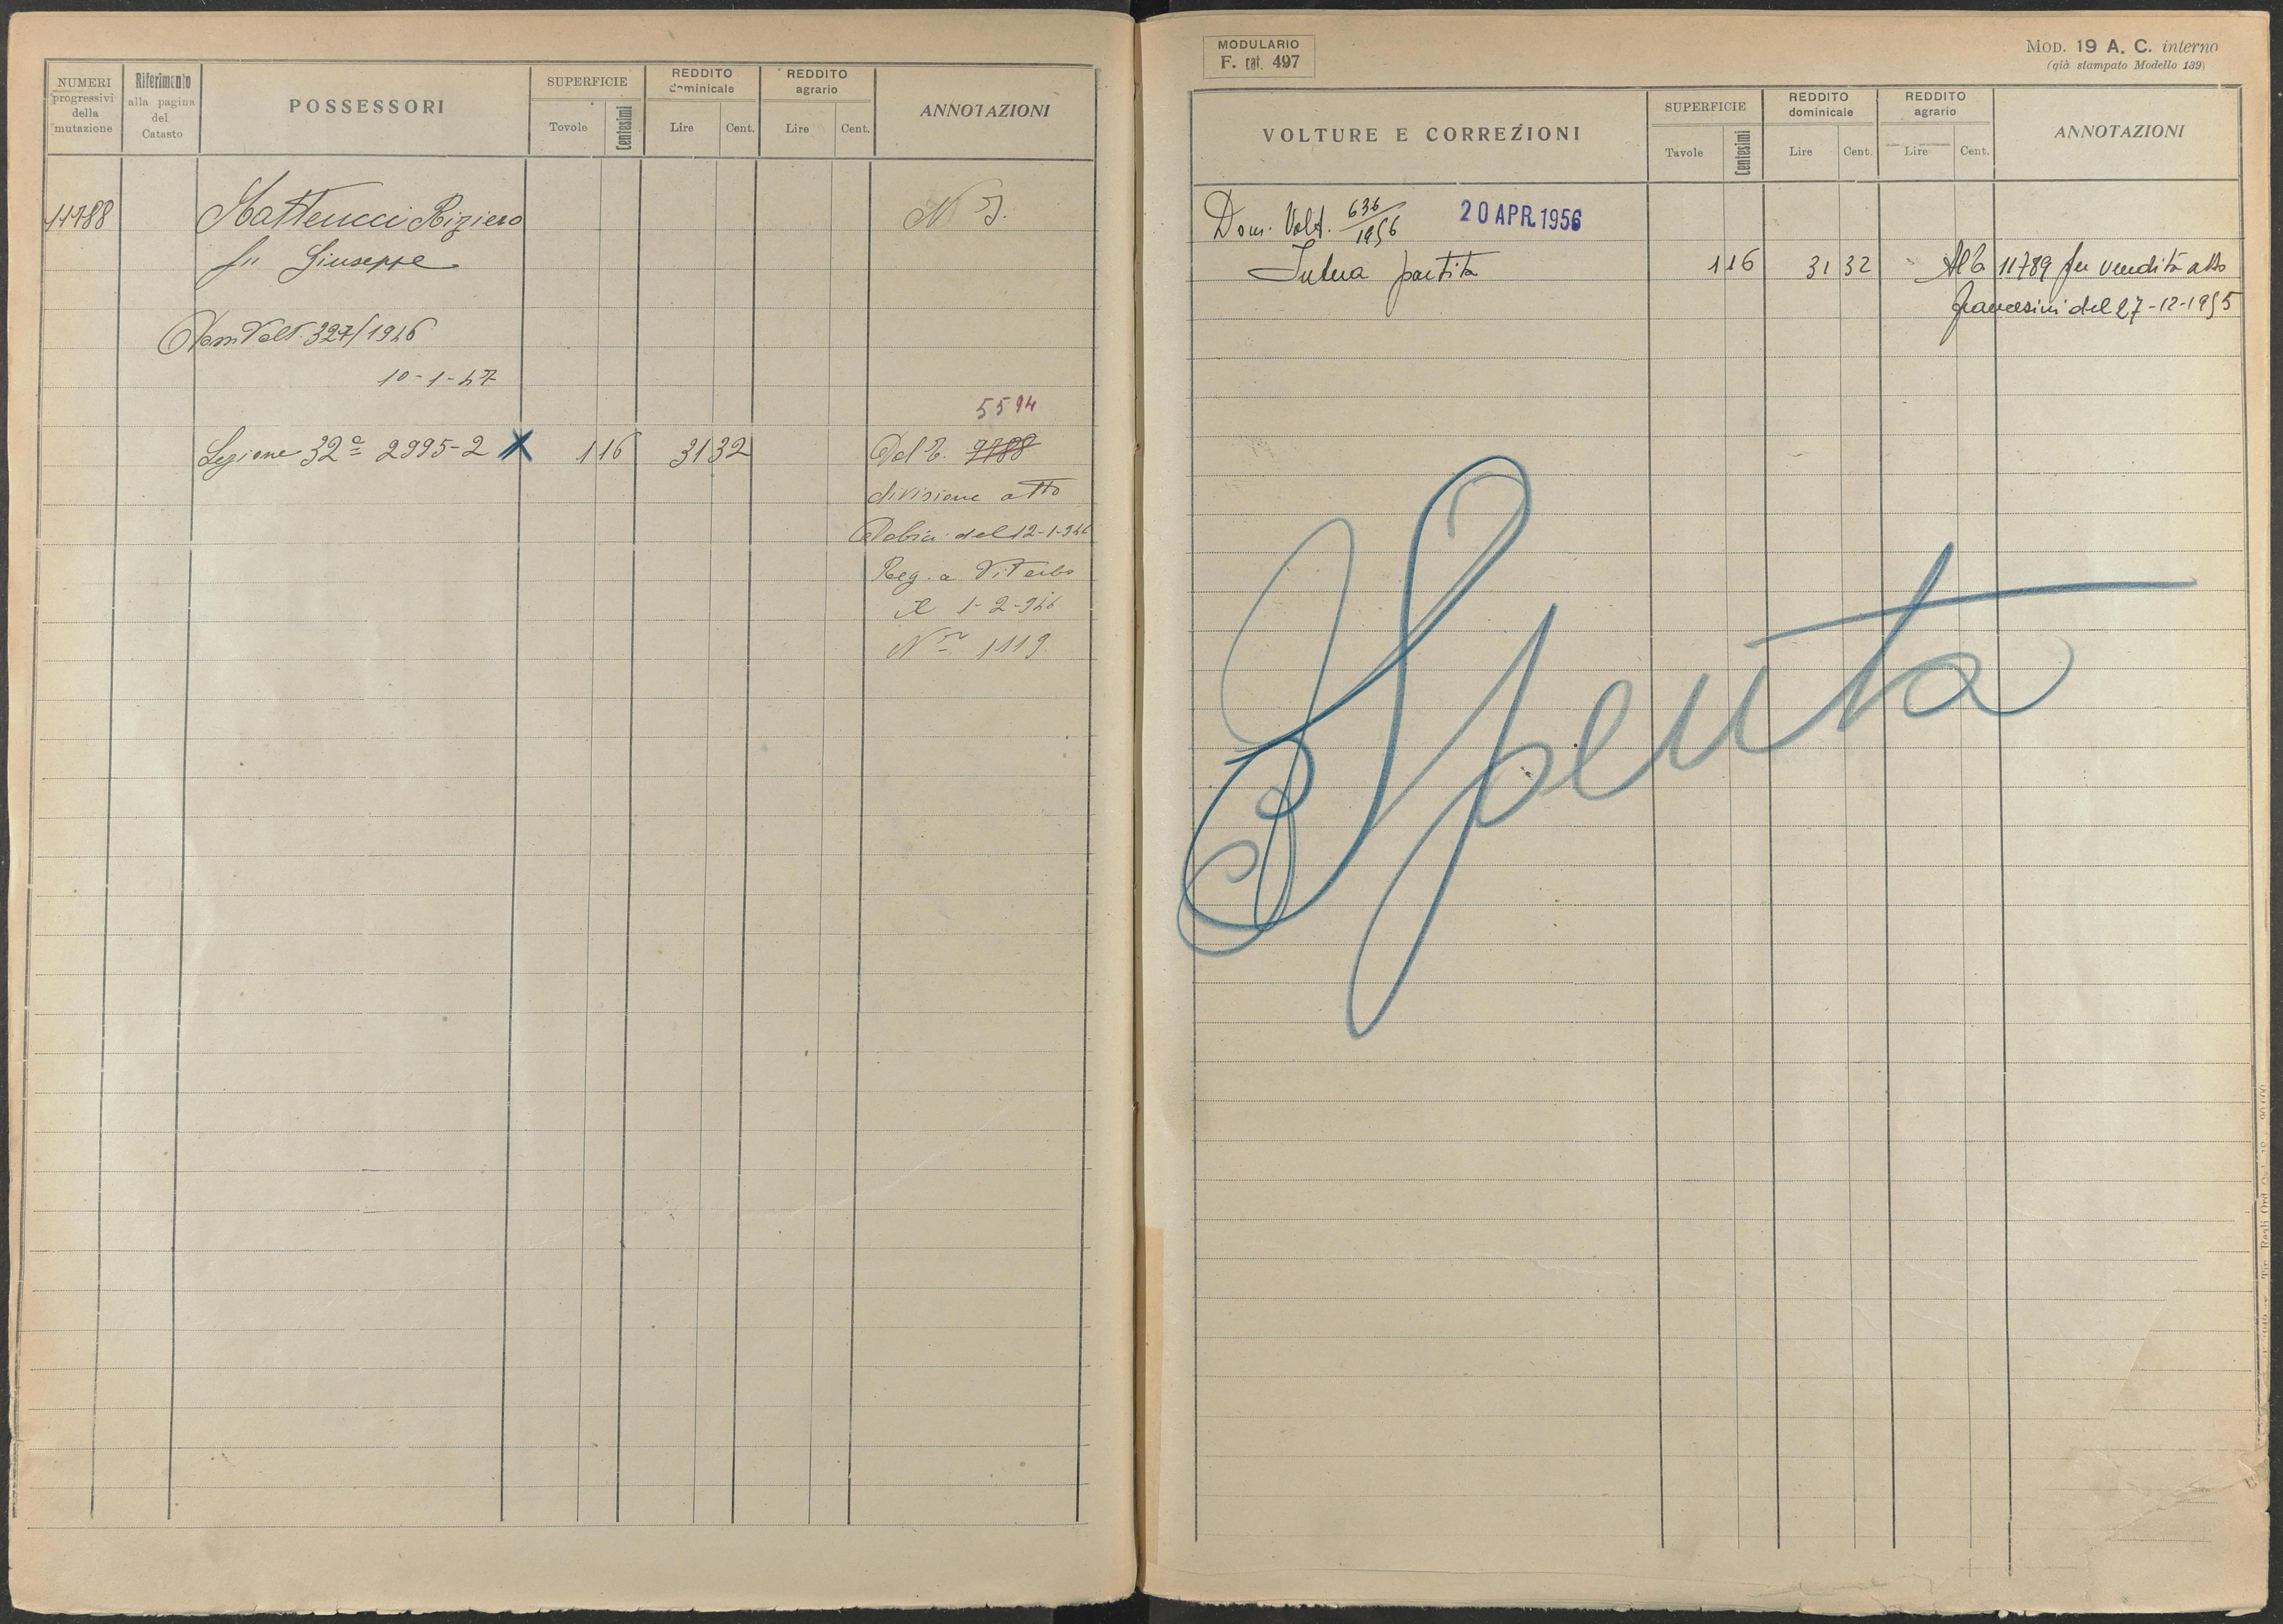 NUMERI progressivi della mutazione
Riferimento alla pagina del Catasto
POSSESSORI
SUPERFICIE
Tavole
Centesimi
REDDITO dominicale
Lire
Cent.
REDDITO agrario
Lire
Cent.
ANNOTAZIONI
11788
Matteucci Riziero
fu Giuseppe
N 3.
Dom Volt. 327/1946
10-1-47
5594
Sezione 32ª 2995-2 X 1 16 31 32 Dal C. 9788
divisione atto
del 12-1-946
Reg. a Viterbo
il 1-2-946
Nº 1119
MODULARIO
F. cat. 497
MOD. 19 A. C. interno
(già stampato Modello 189)
VOLTURE E CORREZIONI
SUPERFICIE
Tavole
Centesimi
REDDITO dominicale
Lire
Cent.
REDDITO agrario
Lire
Cent.
ANNOTAZIONI
Dom. Volt. 636/1956 20 APR. 1956
Intera partita 1 16 31 32 Alla 11789 per vendita atto
Francesini del 27-12-1955
Spenta